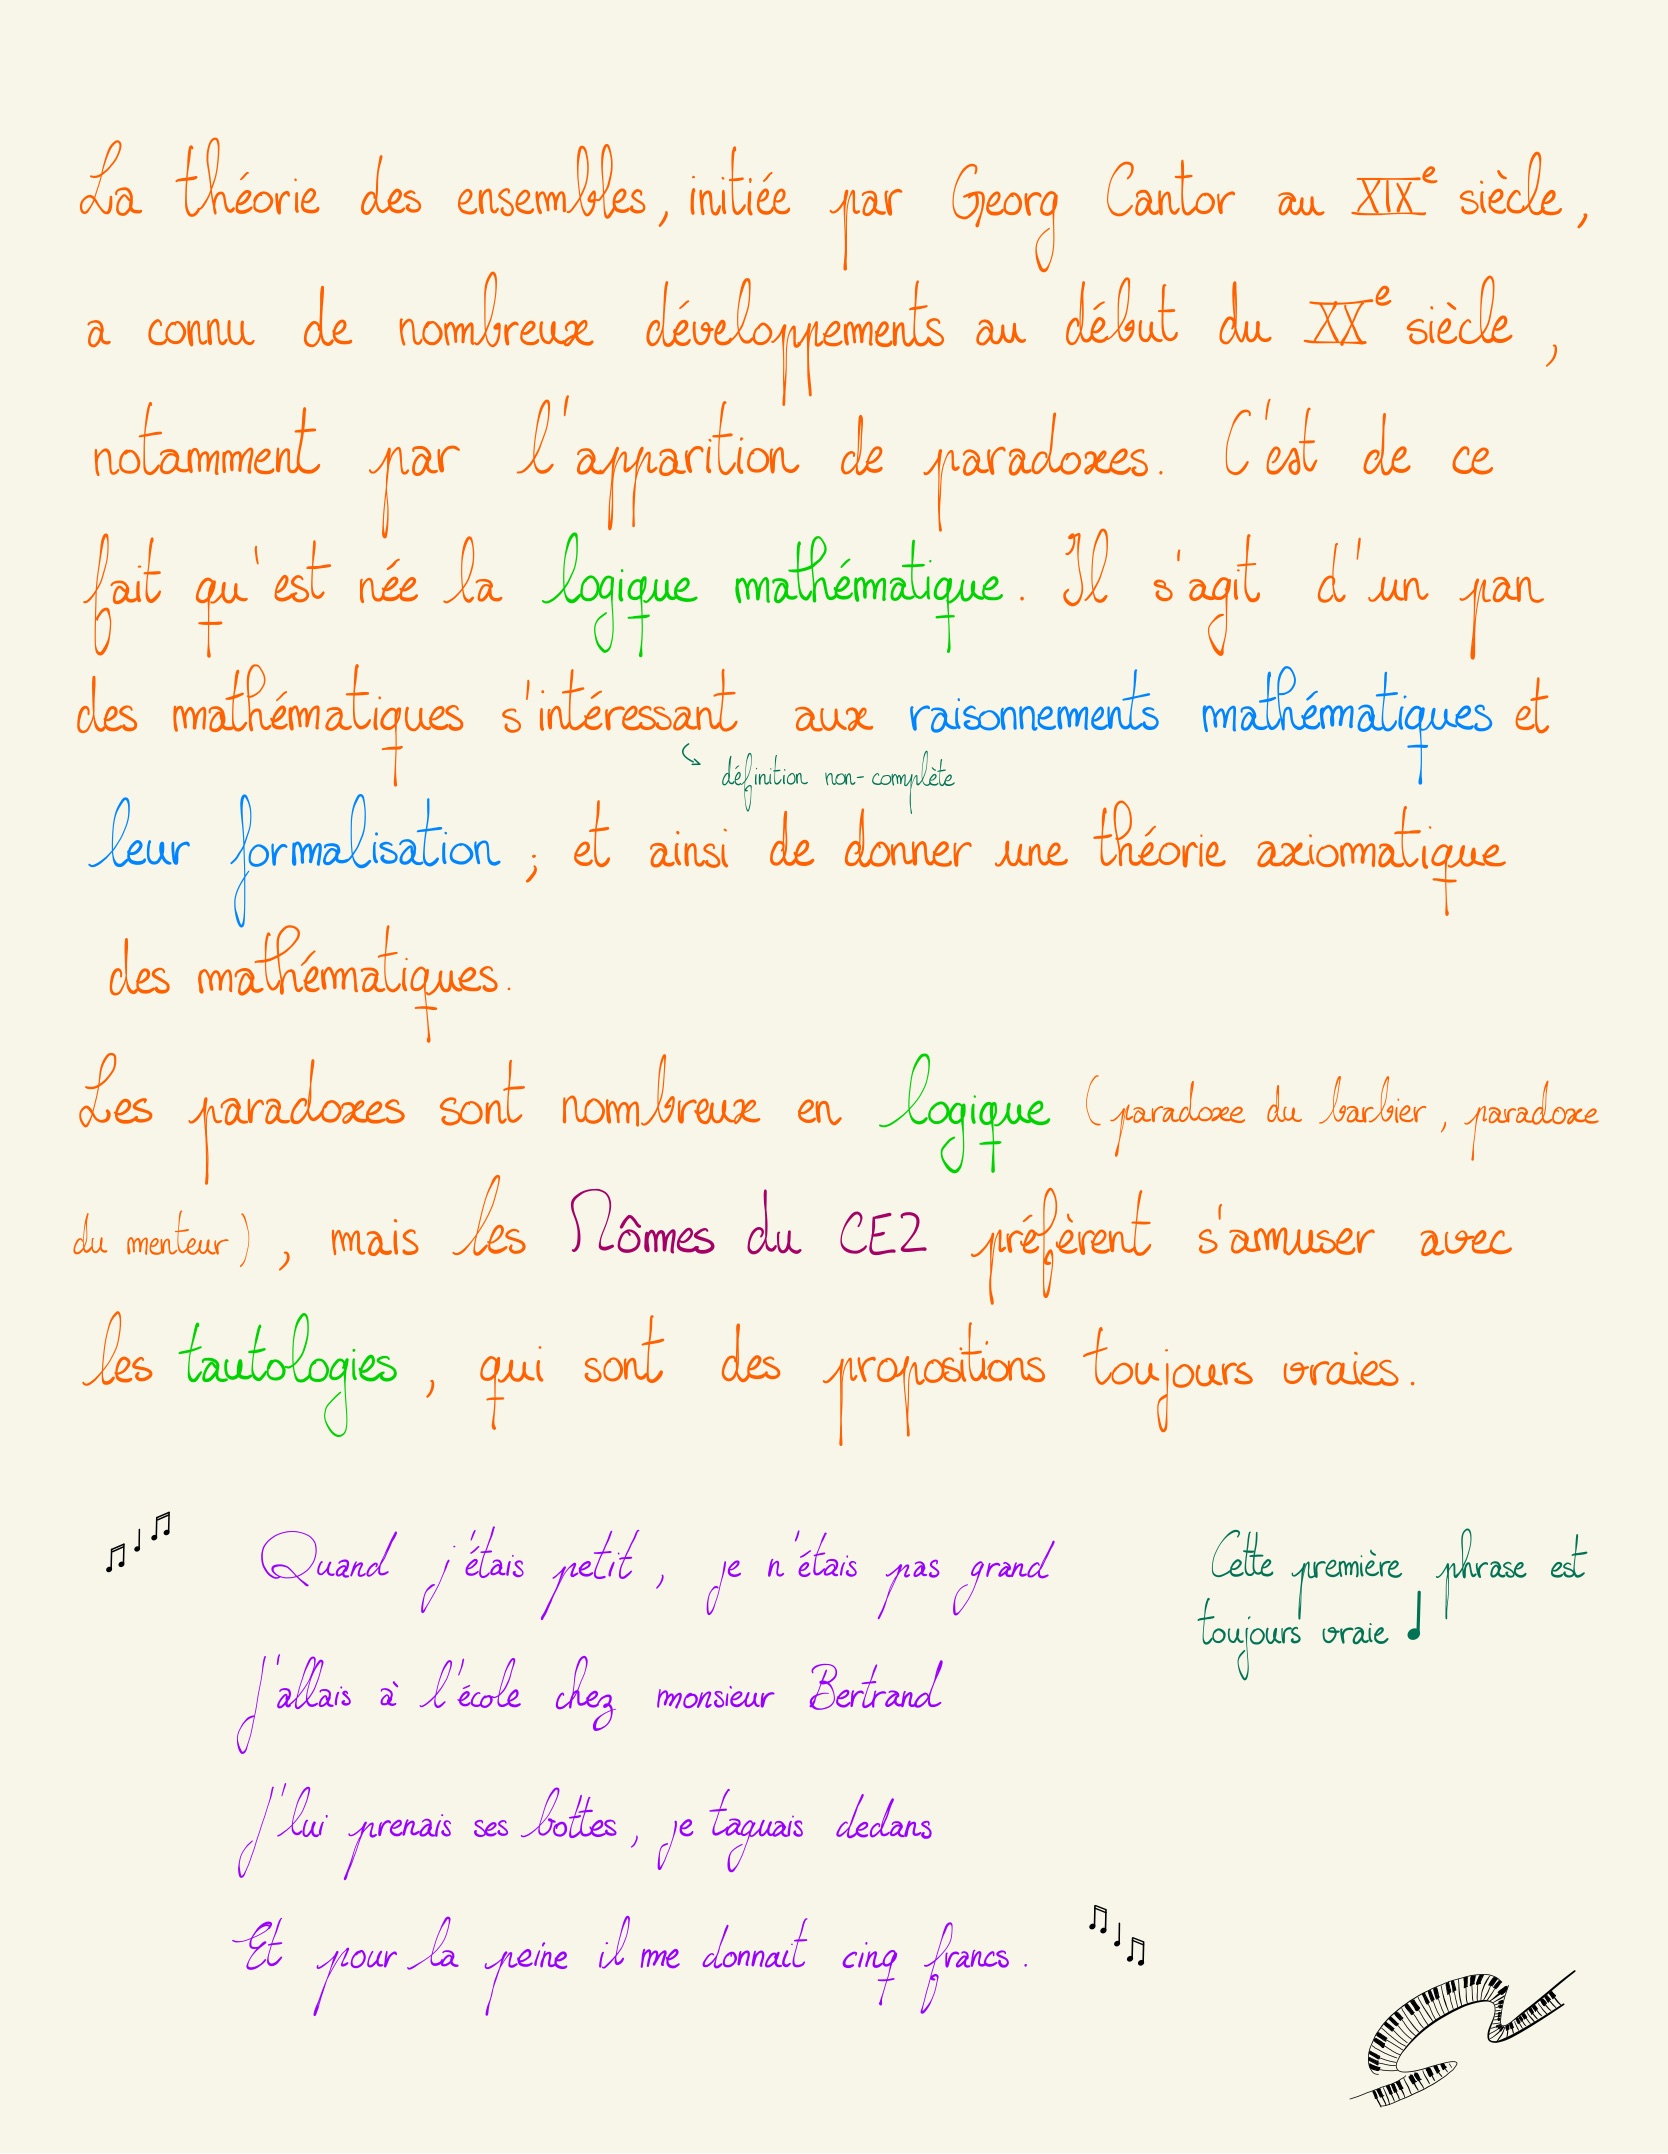 La théorie des ensembles, initiée par Georg Cantor au XIXe siècle,
a connu de nombreux développements au début du XXe siècle,
notamment par l'apparition de paradoxes. C'est de ce
fait qu'est née la logique mathématique. Il s'agit d'un pan
des mathématiques s'intéressant aux raisonnements mathématiques et
définition non-complète
leur formalisation ; et ainsi de donner une théorie axiomatique
des mathématiques.
Les paradoxes sont nombreux en logique (paradoxe du barbier, paradoxe
du menteur), mais les Mômes du CE2 préfèrent s'amuser avec
les tautologies, qui sont des propositions toujours vraies.
Quand j'étais petit, je n'étais pas grand
Cette première phrase est
toujours vraie
J'allais à l'école chez monsieur Bertrand
J'lui prenais ses bottes, je taguais dedans
Et pour la peine il me donnait cinq francs.